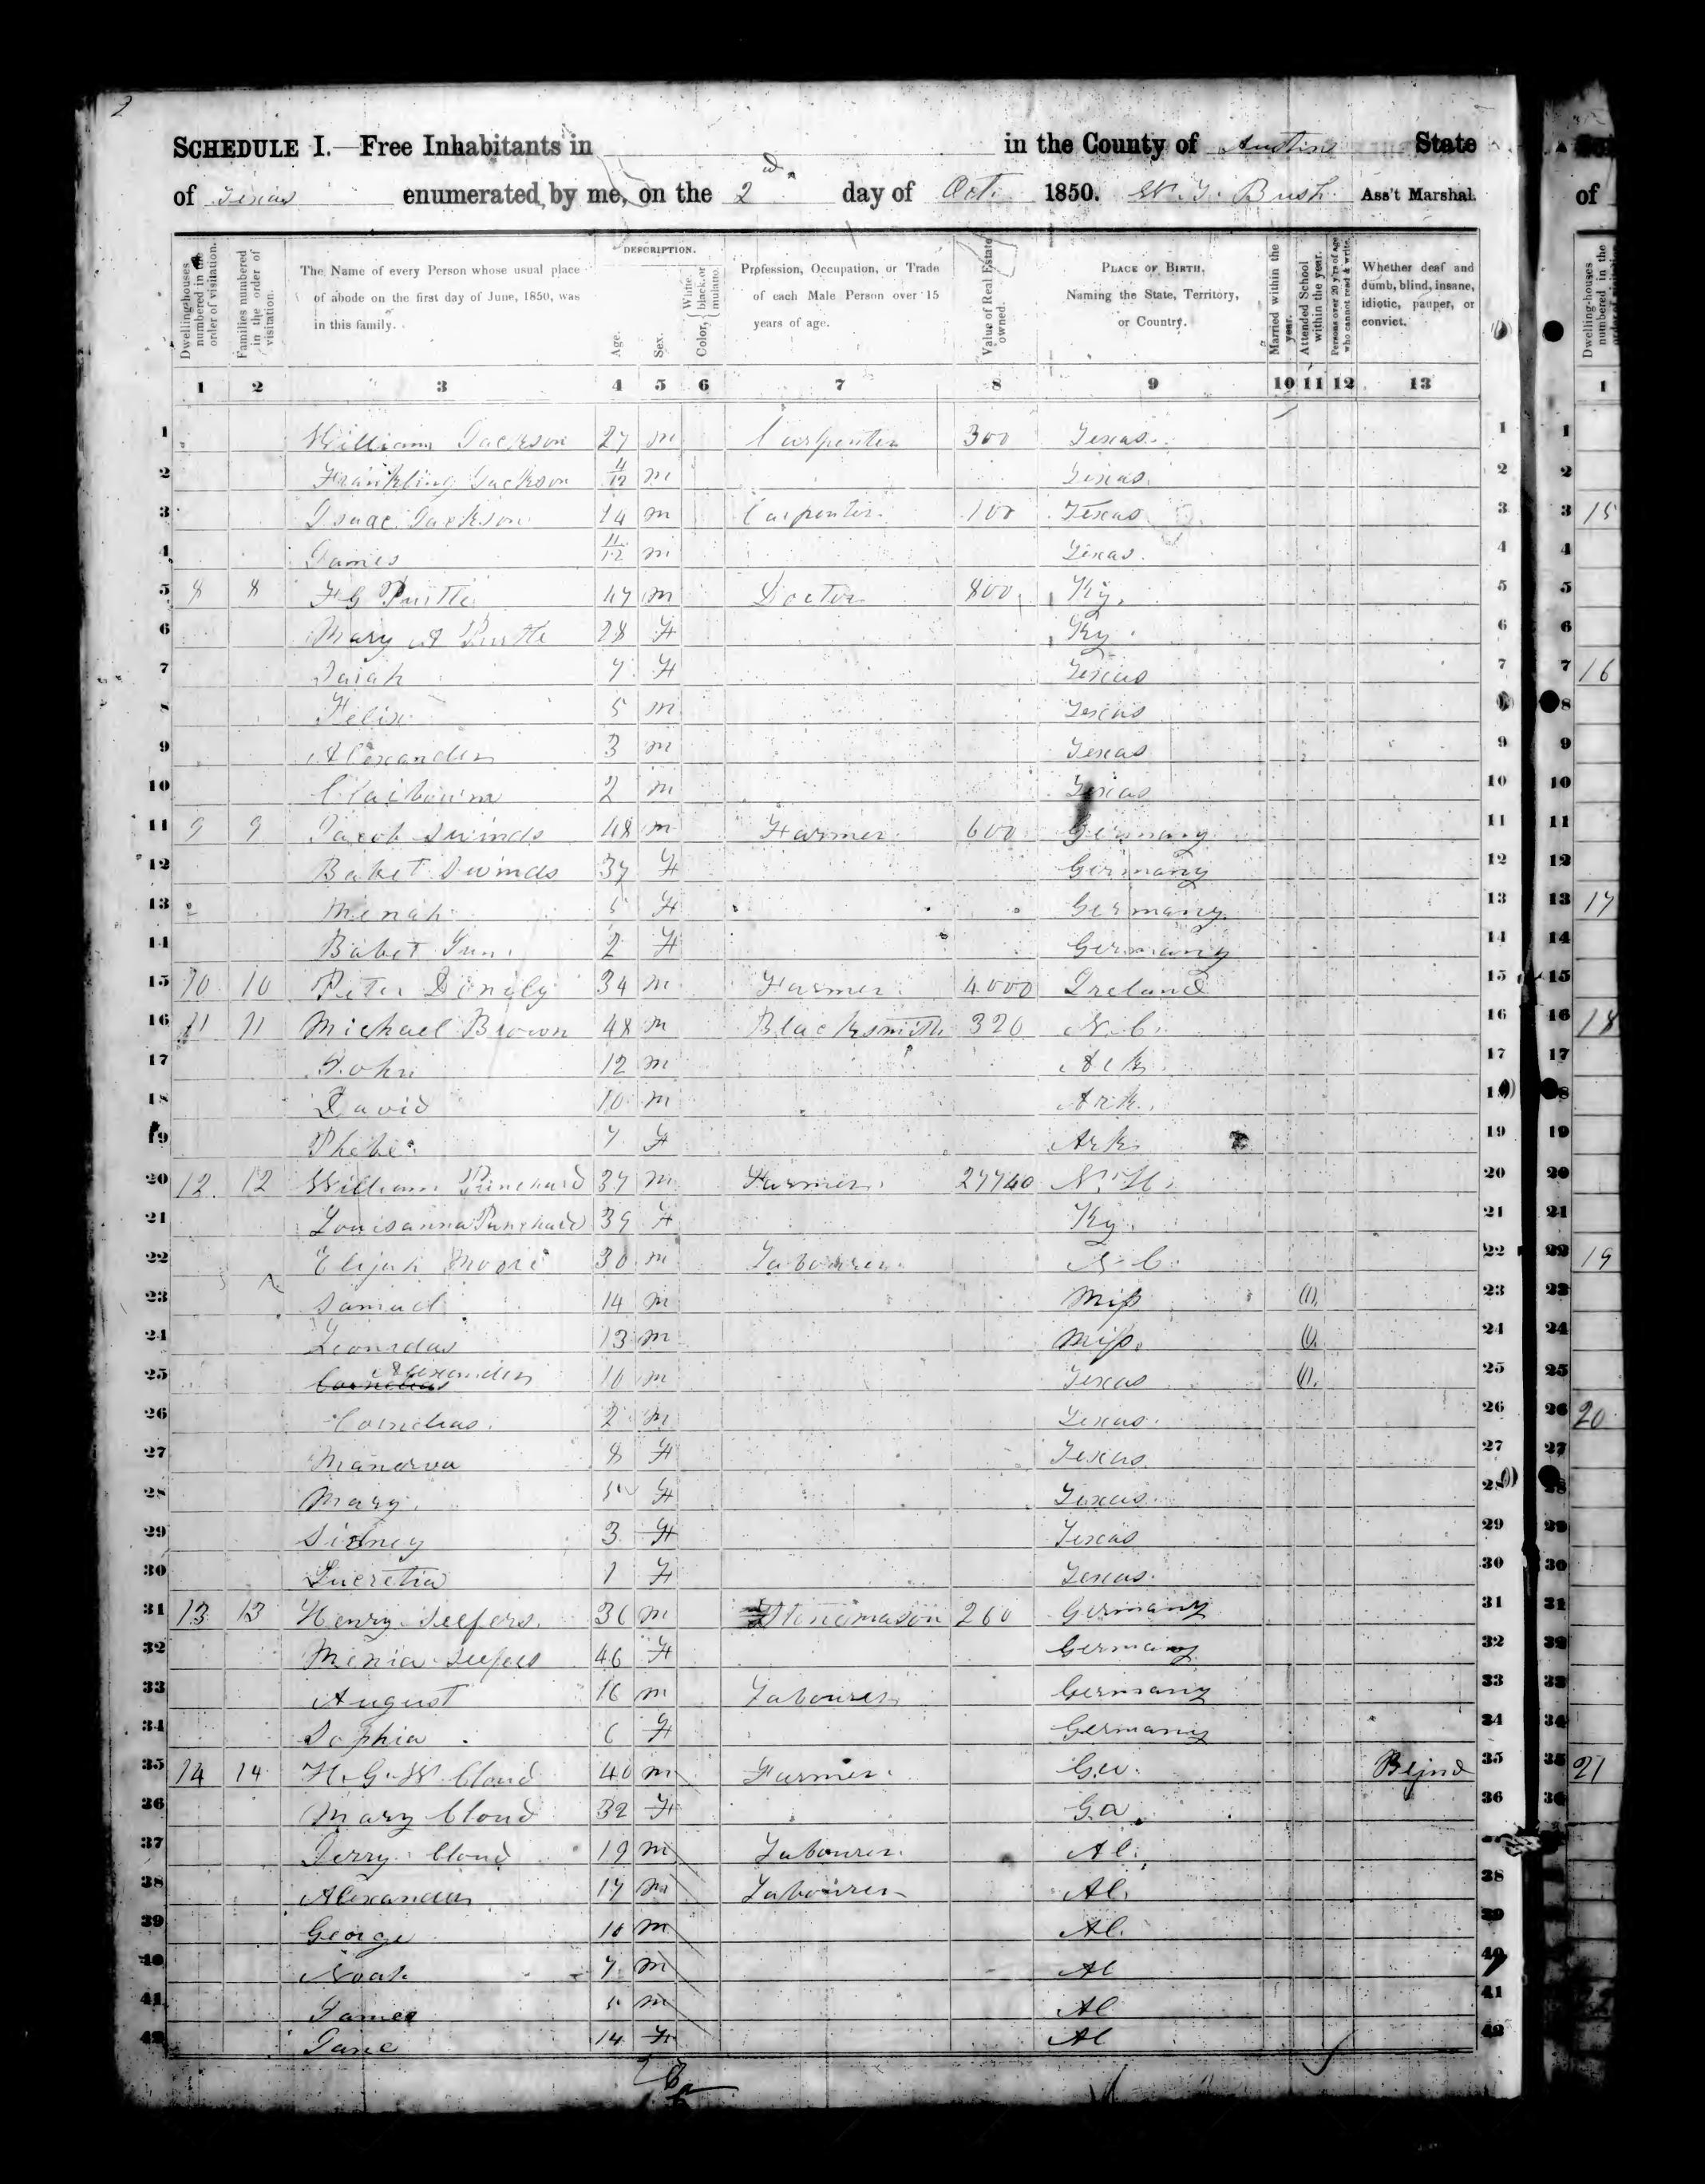 2
SCHEDULE I.—Free Inhabitants in in the County of Austin State
of Texas enumerated by me, on the 2nd day of Oct. 1850. Bush Ass't Marshal.
DESCRIPTION.
Dwelling-houses numbered in the order of visitation.
Families numbered in the order of visitation.
The Name of every Person whose usual place of abode on the first day of June, 1850, was in this family.
Age.
Sex.
Color, White, black, or mulatto.
Profession, Occupation, or Trade of each Male Person over 15 years of age.
Value of Real Estate owned.
PLACE OF BIRTH, Naming the State, Territory, or Country.
Married within the year.
Attended School within the year.
Persons over 20 y'rs of age who cannot read & write.
Whether deaf and dumb, blind, insane, idiotic, pauper, or convict.
1 2 3 4 5 6 7 8 9 10 11 12 13
1 William Jackson 27 m Carpenter 300 Texas 1
2 Frankling Jackson m Texas 2
3 Isaac Jackson 14 m Carpenter 100 Texas 3
4 James 11/12 m Texas 4
5 8 8 47 m Doctor 800 Ky. 5
6 Mary A 28 F Ky. 6
7 7 F Texas 7
8 Felix 5 m Texas
9 Alexander 3 m Texas 9
10 Claibourn 2 m Texas 10
11 9 9 Jacob Swinds 48 m Farmer 600 Germany 11
12 Babet Swinds 37 F Germany 12
13 Menah 5 F Germany 13
14 Babet 2 F Germany 14
15 10 10 Peter Donely 34 m Farmer 4000 Ireland 15
16 11 11 Michael Brown 48 m Blacksmith 320 N.C. 16
17 John 12 m Ark 17
18 David 10 m Ark. 18
19 Phebe 7 F Ark 19
20 12 12 William Punchard 37 m Farmer 27740 N.H. 20
21 Louisanna Punchard 39 F Ky. 21
22 Elijah Moore 30 m Labourer N.C. 22
23 Samuel 14 m Miss 23
24 Leonidas 13 m Miss. 24
25 Cornelias Alexander 10 m Texas 25
26 Cornelias. 2 m Texas. 26
27 Manerva 8 F Texas 27
28 Mary. 5 F Texas 28
29 Sidney 3 F Texas 29
30 Lucretia 1 F Texas. 30
31 13 13 Henry Seefers. 36 m Stonemason 260 Germany 31
32 Menia Seefers 46 F Germany 32
33 August 16 m Labourer Germany 33
34 Sophia 6 F Germany 34
35 14 14 H. G. W Cloud 40 m Farmer Ga. Blind 35
36 Mary Cloud 32 F Ga. 36
37 Cloud 19 m Labourer Al.
38 Alexander 17 m Labourer Al. 38
39 George 10 m Al. 39
40 Noah 7 m Al 40
41 James 5 m Al 41
42 Jane 14 F Al 42
of
Dwelling-houses numbered in the
1
1
2
3 15
4
5
6
7 16
8
9
10
11
12
13 17
14
15
16 18
17
19
20
21
22 19
23
24
25
26 20
27
28
29
30
31
32
33
34
35 21
36